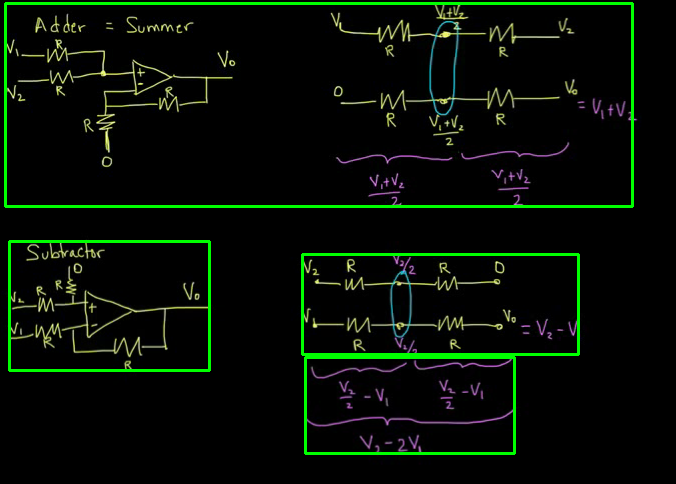 Adder = Summer
V₁ R
V₂ R
+
-
V₀
R
R
0
V₁ R (V₁+V₂)/2 R V₂
0 R (V₁+V₂)/2 R V₀ = V₁+V₂
(V₁+V₂)/2 (V₁+V₂)/2
Subtractor
0
R
V₂ R
+
V₁ R
-
V₀
R
V₂ R V₂/2 R 0
V R V₂/2 R V₀ = V₂ - V
V₂/2 - V₁ V₂/2 - V₁
V₂ - 2V₁